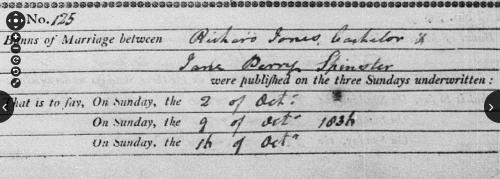 No. 125
Banns of Marriage between Richard Jones, Bachelor &
Jane Berry Spinster
were publiſhed on the three Sundays underwritten:
That is to ſay, On Sunday, the 2 of Octr
On Sunday, the 9 of Octr 1836
On Sunday, the 16 of Octr